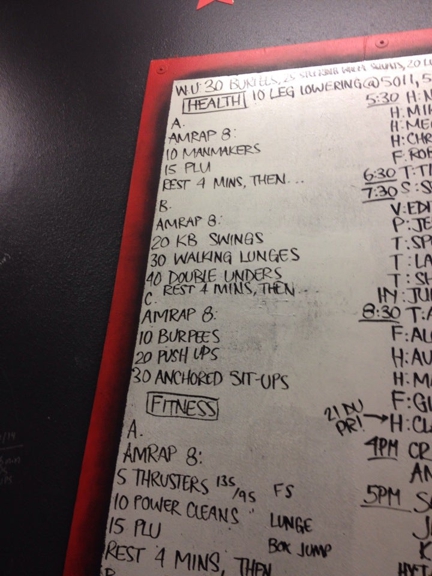 W.U: 30 BURPEES, 25 
HEALTH 10 LEG LOWERING @ 5011, 5
A.
AMRAP 8:
10 MANMAKERS
15 PLU
REST 4 MINS, THEN...
B.
AMRAP 8:
20 KB SWINGS
30 WALKING LUNGES
40 DOUBLE UNDERS
REST 4 MINS, THEN...
C.
AMRAP 8:
10 BURPEES
20 PUSH UPS
30 ANCHORED SIT-UPS
FITNESS
A.
AMRAP 8:
5 THRUSTERS 135/95 FS
10 POWER CLEANS " LUNGE
15 PLU BOX JUMP
REST 4 MINS, THEN
B
5:30 H:
H: MI
H: ME
H: CHR
F: ROB
6:30 T: T
7:30 S: S
V: EDI
P: JE
T: SP
T: LA
T: SH
HY: JU
8:30 T: A
F: AL
H: AU
H: M
F: GI
21 DU PR! → H: CL
4PM CR
AN
5PM S
J
K
HYT